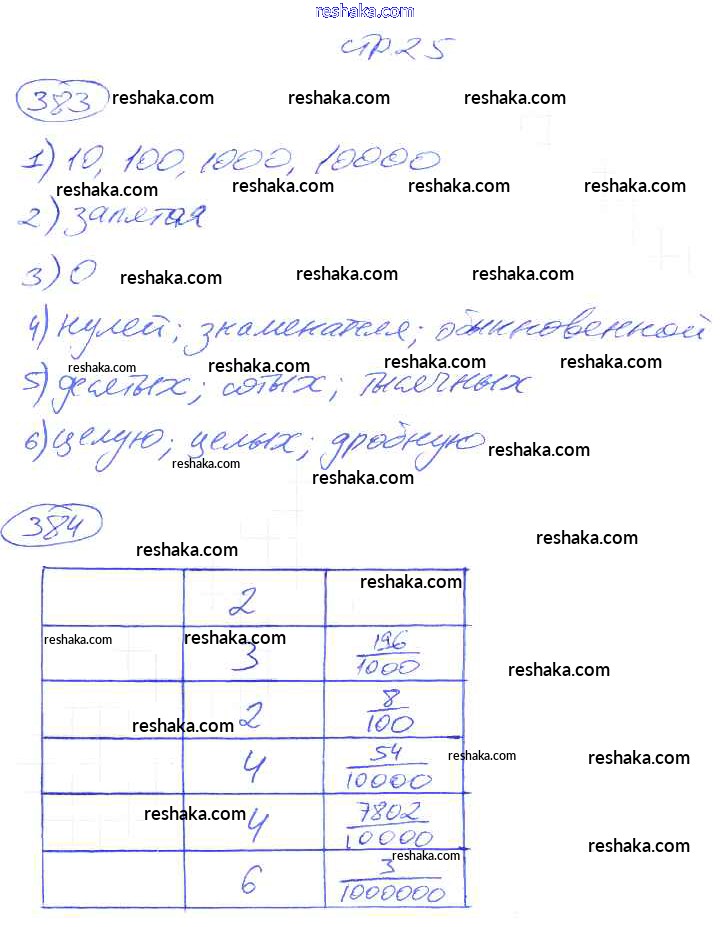 reshaka.com
стр 25
383 reshaka.com reshaka.com reshaka.com
1) 10, 100, 1000, 10000
reshaka.com reshaka.com reshaka.com reshaka.com
2) запятая
3) 0 reshaka.com reshaka.com reshaka.com
4) нулей; знаменателя; обыкновенной
reshaka.com reshaka.com reshaka.com reshaka.com
5) десятых; сотых; тысячных
6) целую; целых; дробную reshaka.com
reshaka.com reshaka.com
384
reshaka.com reshaka.com
2 reshaka.com
reshaka.com reshaka.com
3 196/1000
reshaka.com
2 8/100
reshaka.com
4 54/10000 reshaka.com reshaka.com
reshaka.com
4 7802/10000 reshaka.com
reshaka.com
6 3/1000000